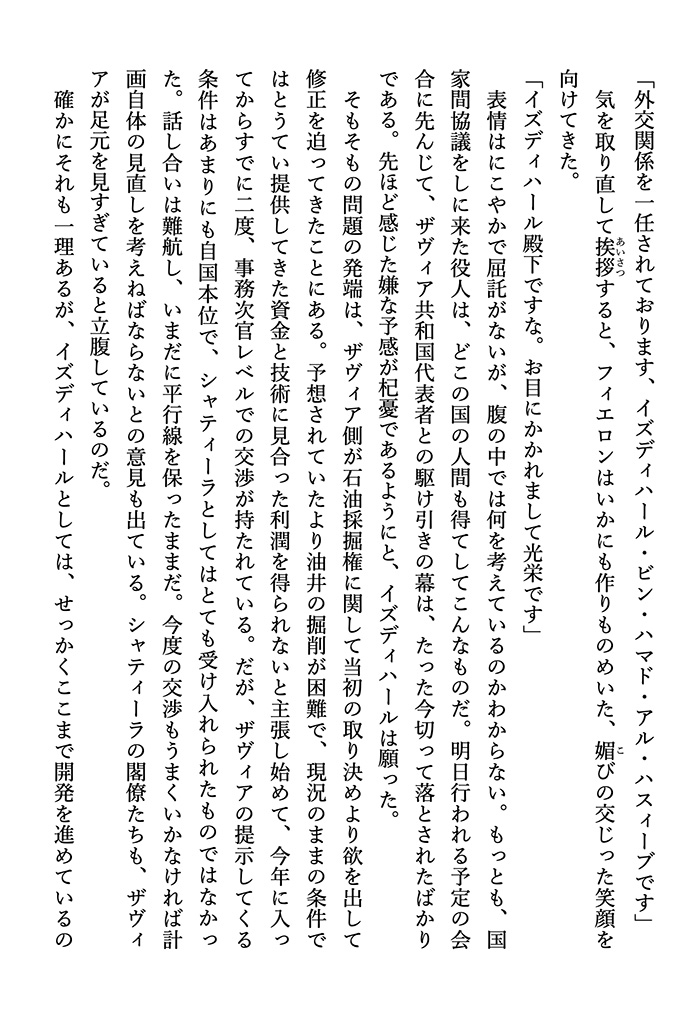 「外交関係を一任されております、イズディハール・ビン・ハマド・アル・ハスィーブです」
気を取り直して挨拶すると、フィエロンはいかにも作りものめいた、媚びの交じった笑顔を
向けてきた。
「イズディハール殿下ですな。お目にかかれまして光栄です」
表情はにこやかで屈託がないが、腹の中では何を考えているのかわからない。もっとも、国
家間協議をしに来た役人は、どこの国の人間も得てしてこんなものだ。明日行われる予定の会
合に先んじて、ザヴィア共和国代表者との駆け引きの幕は、たった今切って落とされたばかり
である。先ほど感じた嫌な予感が杞憂であるようにと、イズディハールは願った。
そもそもの問題の発端は、ザヴィア側が石油採掘権に関して当初の取り決めより欲を出して
修正を迫ってきたことにある。予想されていたより油井の掘削が困難で、現況のままの条件で
はとうてい提供してきた資金と技術に見合った利潤を得られないと主張し始めて、今年に入っ
てからすでに二度、事務次官レベルでの交渉が持たれている。だが、ザヴィアの提示してくる
条件はあまりにも自国本位で、シャティーラとしてはとても受け入れられたものではなかっ
た。話し合いは難航し、いまだに平行線を保ったままだ。今度の交渉もうまくいかなければ計
画自体の見直しを考えねばならないとの意見も出ている。シャティーラの閣僚たちも、ザヴィ
アが足元を見すぎていると立腹しているのだ。
確かにそれも一理あるが、イズディハールとしては、せっかくここまで開発を進めているの